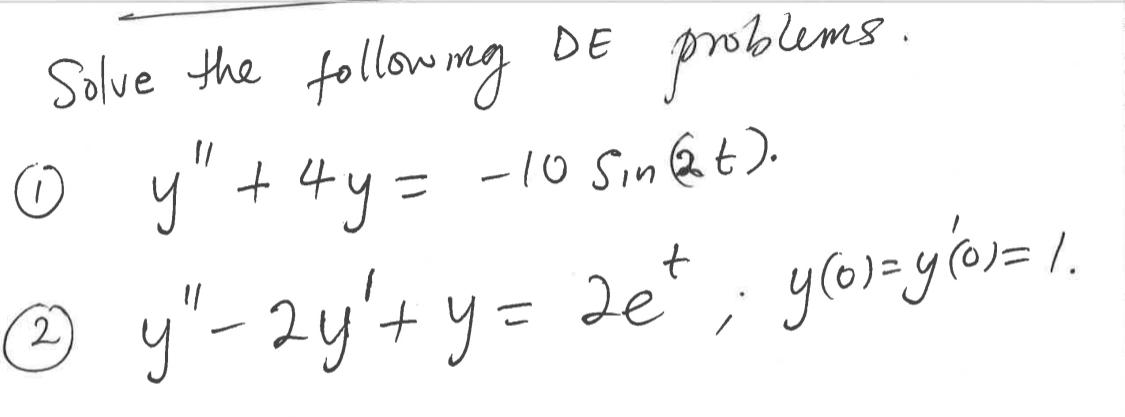 Solve the following DE problems.
① y" + 4y = -10 Sin(2t).
② y" - 2y' + y = 2e^t ; y(0)=y'(0)=1.